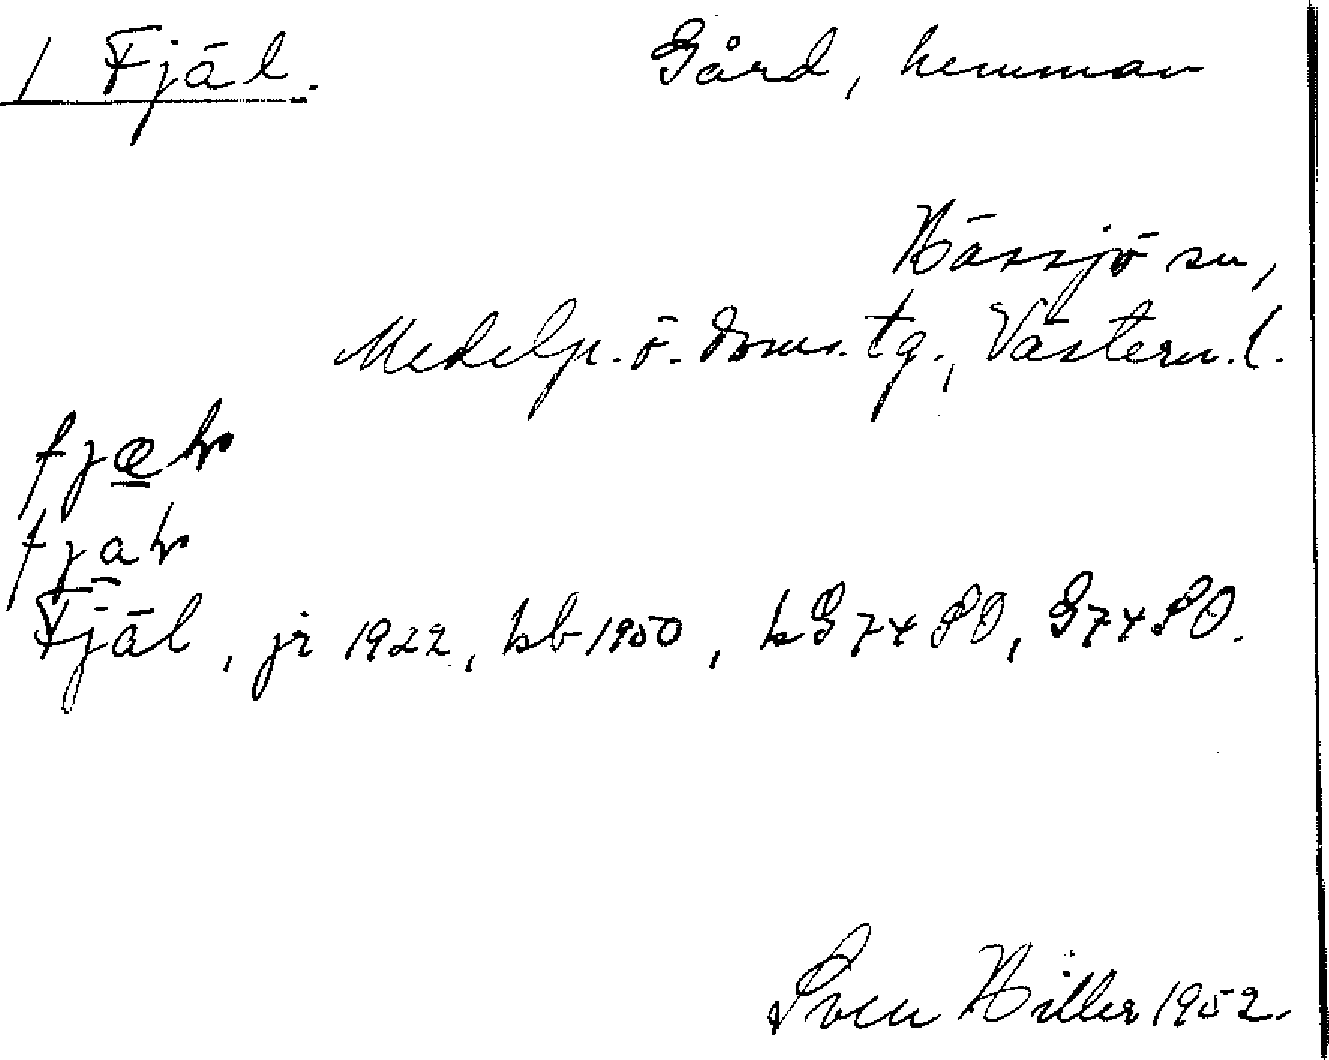 1 Fjäl. Gård, hemman
Hässjö sn,
Medelp. ö. doms. tg., Västern. l.
fjæl
fjal
Fjäl, jr 1922, kb 1950, kG 74 SO, G 74 SO.
Sven Hiller 1952.